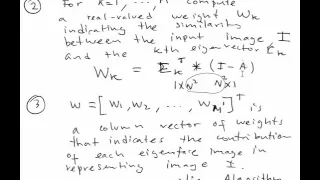 ② For K=1, ..., M' compute
a real-valued weight Wk
indicating the similarity
between the input image I
and the kth eigenvector Ek
Wk = Ek^T * (I - A)
1xN² N²x1
③ W = [W1, W2, ..., WM']^T is
a column vector of weights
that indicates the contribution
of each eigenface image in
representing image I.
Algorithm